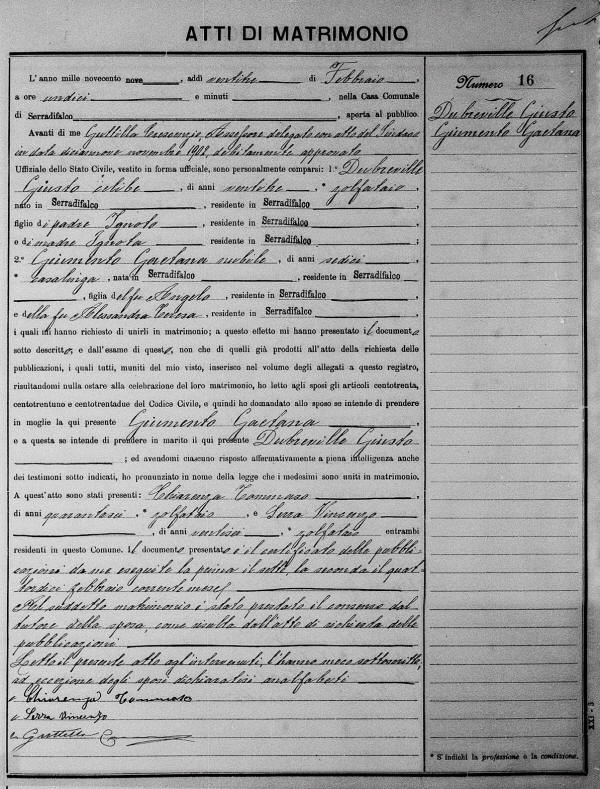 ATTI DI MATRIMONIO
L'anno mille novecento nove, addì ventitre di Febbraio,
a ore undici e minuti, nella Casa Comunale
di Serradifalco, aperta al pubblico.
Avanti di me Guttilla Crescenzio, Assessore delegato con atto del Sindaco
in data diciannove novembre 1902, debitamente approvato
Uffiziale dello Stato Civile, vestito in forma uffiziale, sono personalmente comparsi: 1.° Dubreville
Giusto celibe, di anni ventitre, * zolfataio
nato in Serradifalco, residente in Serradifalco,
figlio di padre Ignoto, residente in Serradifalco,
e di madre Ignota residente in Serradifalco;
2.° Giumento Gaetana nubile, di anni sedici
* casalinga, nata in Serradifalco, residente in Serradifalco
, figlia del fu Angelo, residente in Serradifalco
e della fu Alessandra Teresa, residente in Serradifalco
i quali mi hanno richiesto di unirli in matrimonio; a questo effetto mi hanno presentato il documento
sotto descritto, e dall'esame di questo, non che di quelli già prodotti all'atto della richiesta delle
pubblicazioni, i quali tutti, muniti del mio visto, inserisco nel volume degli allegati a questo registro,
risultandomi nulla ostare alla celebrazione del loro matrimonio, ho letto agli sposi gli articoli centotrenta,
centotrentuno e centotrentadue del Codice Civile, e quindi ho domandato allo sposo se intende di prendere
in moglie la qui presente Giumento Gaetana,
e a questa se intende di prendere in marito il qui presente Dubreville Giusto
; ed avendomi ciascuno risposto affermativamente a piena intelligenza anche
dei testimoni sotto indicati, ho pronunziato in nome della legge che i medesimi sono uniti in matrimonio.
A quest'atto sono stati presenti: Chiarenza Tommaso,
di anni quarantasei, * zolfataio, e Serra Vincenzo
, di anni ventisei, * zolfataio entrambi
residenti in questo Comune. Il documento presentato è il certificato delle pubbli-
cazioni da me eseguite la prima il sette, la seconda il quat-
tordici febbraio corrente mese
Al suddetto matrimonio è stato prestato il consenso dal
tutore della sposa, come risulta dall'atto di richiesta delle
pubblicazioni
Letto il presente atto agl'intervenuti, l'hanno meco sottoscritto,
ad eccezione degli sposi dichiaratisi analfabeti
Chiarenza Tommaso
Serra Vincenzo
Guttilla
Numero 16
Dubreville Giusto
Giumento Gaetana
XXI - 3
* S'indichi la professione o la condizione.